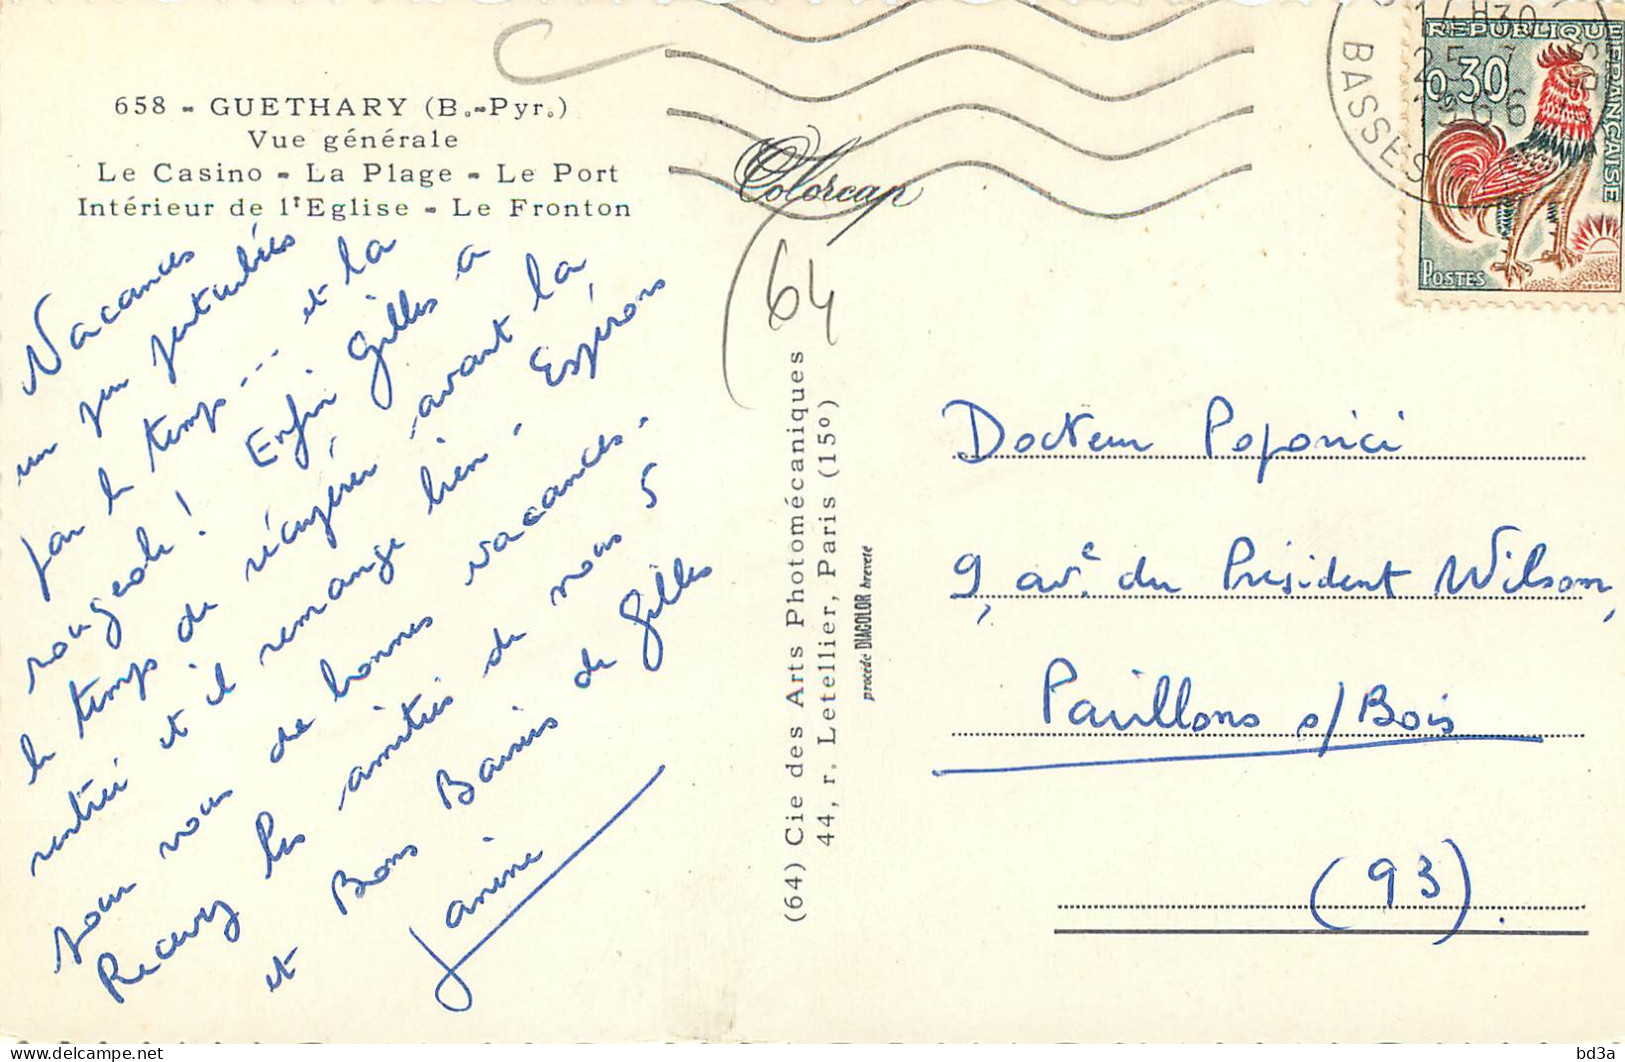 658 - GUETHARY (B.-Pyr.)
Vue générale
Le Casino - La Plage - Le Port
Intérieur de l'Eglise - Le Fronton
Vacances
un peu perturbées
par le temps... et la
rougeole! Enfin Gilles a
le temps de récupérer avant la
rentrée et il remange bien. Espérons
pour vous de bonnes vacances.
Recevez les amitiés de nous 5
et Bons Baisers de Gilles
Janine
Colorcap
64
(64) Cie des Arts Photomécaniques
44, r. Letellier, Paris (15º)
procédé DIACOLOR breveté
14H30
25-7
1966
BASSES
REPUBLIQUE FRANÇAISE
0,30
POSTES
Docteur Popovici
9, av.e du Président Wilson,
Pavillons s/Bois
(93).
bd3a